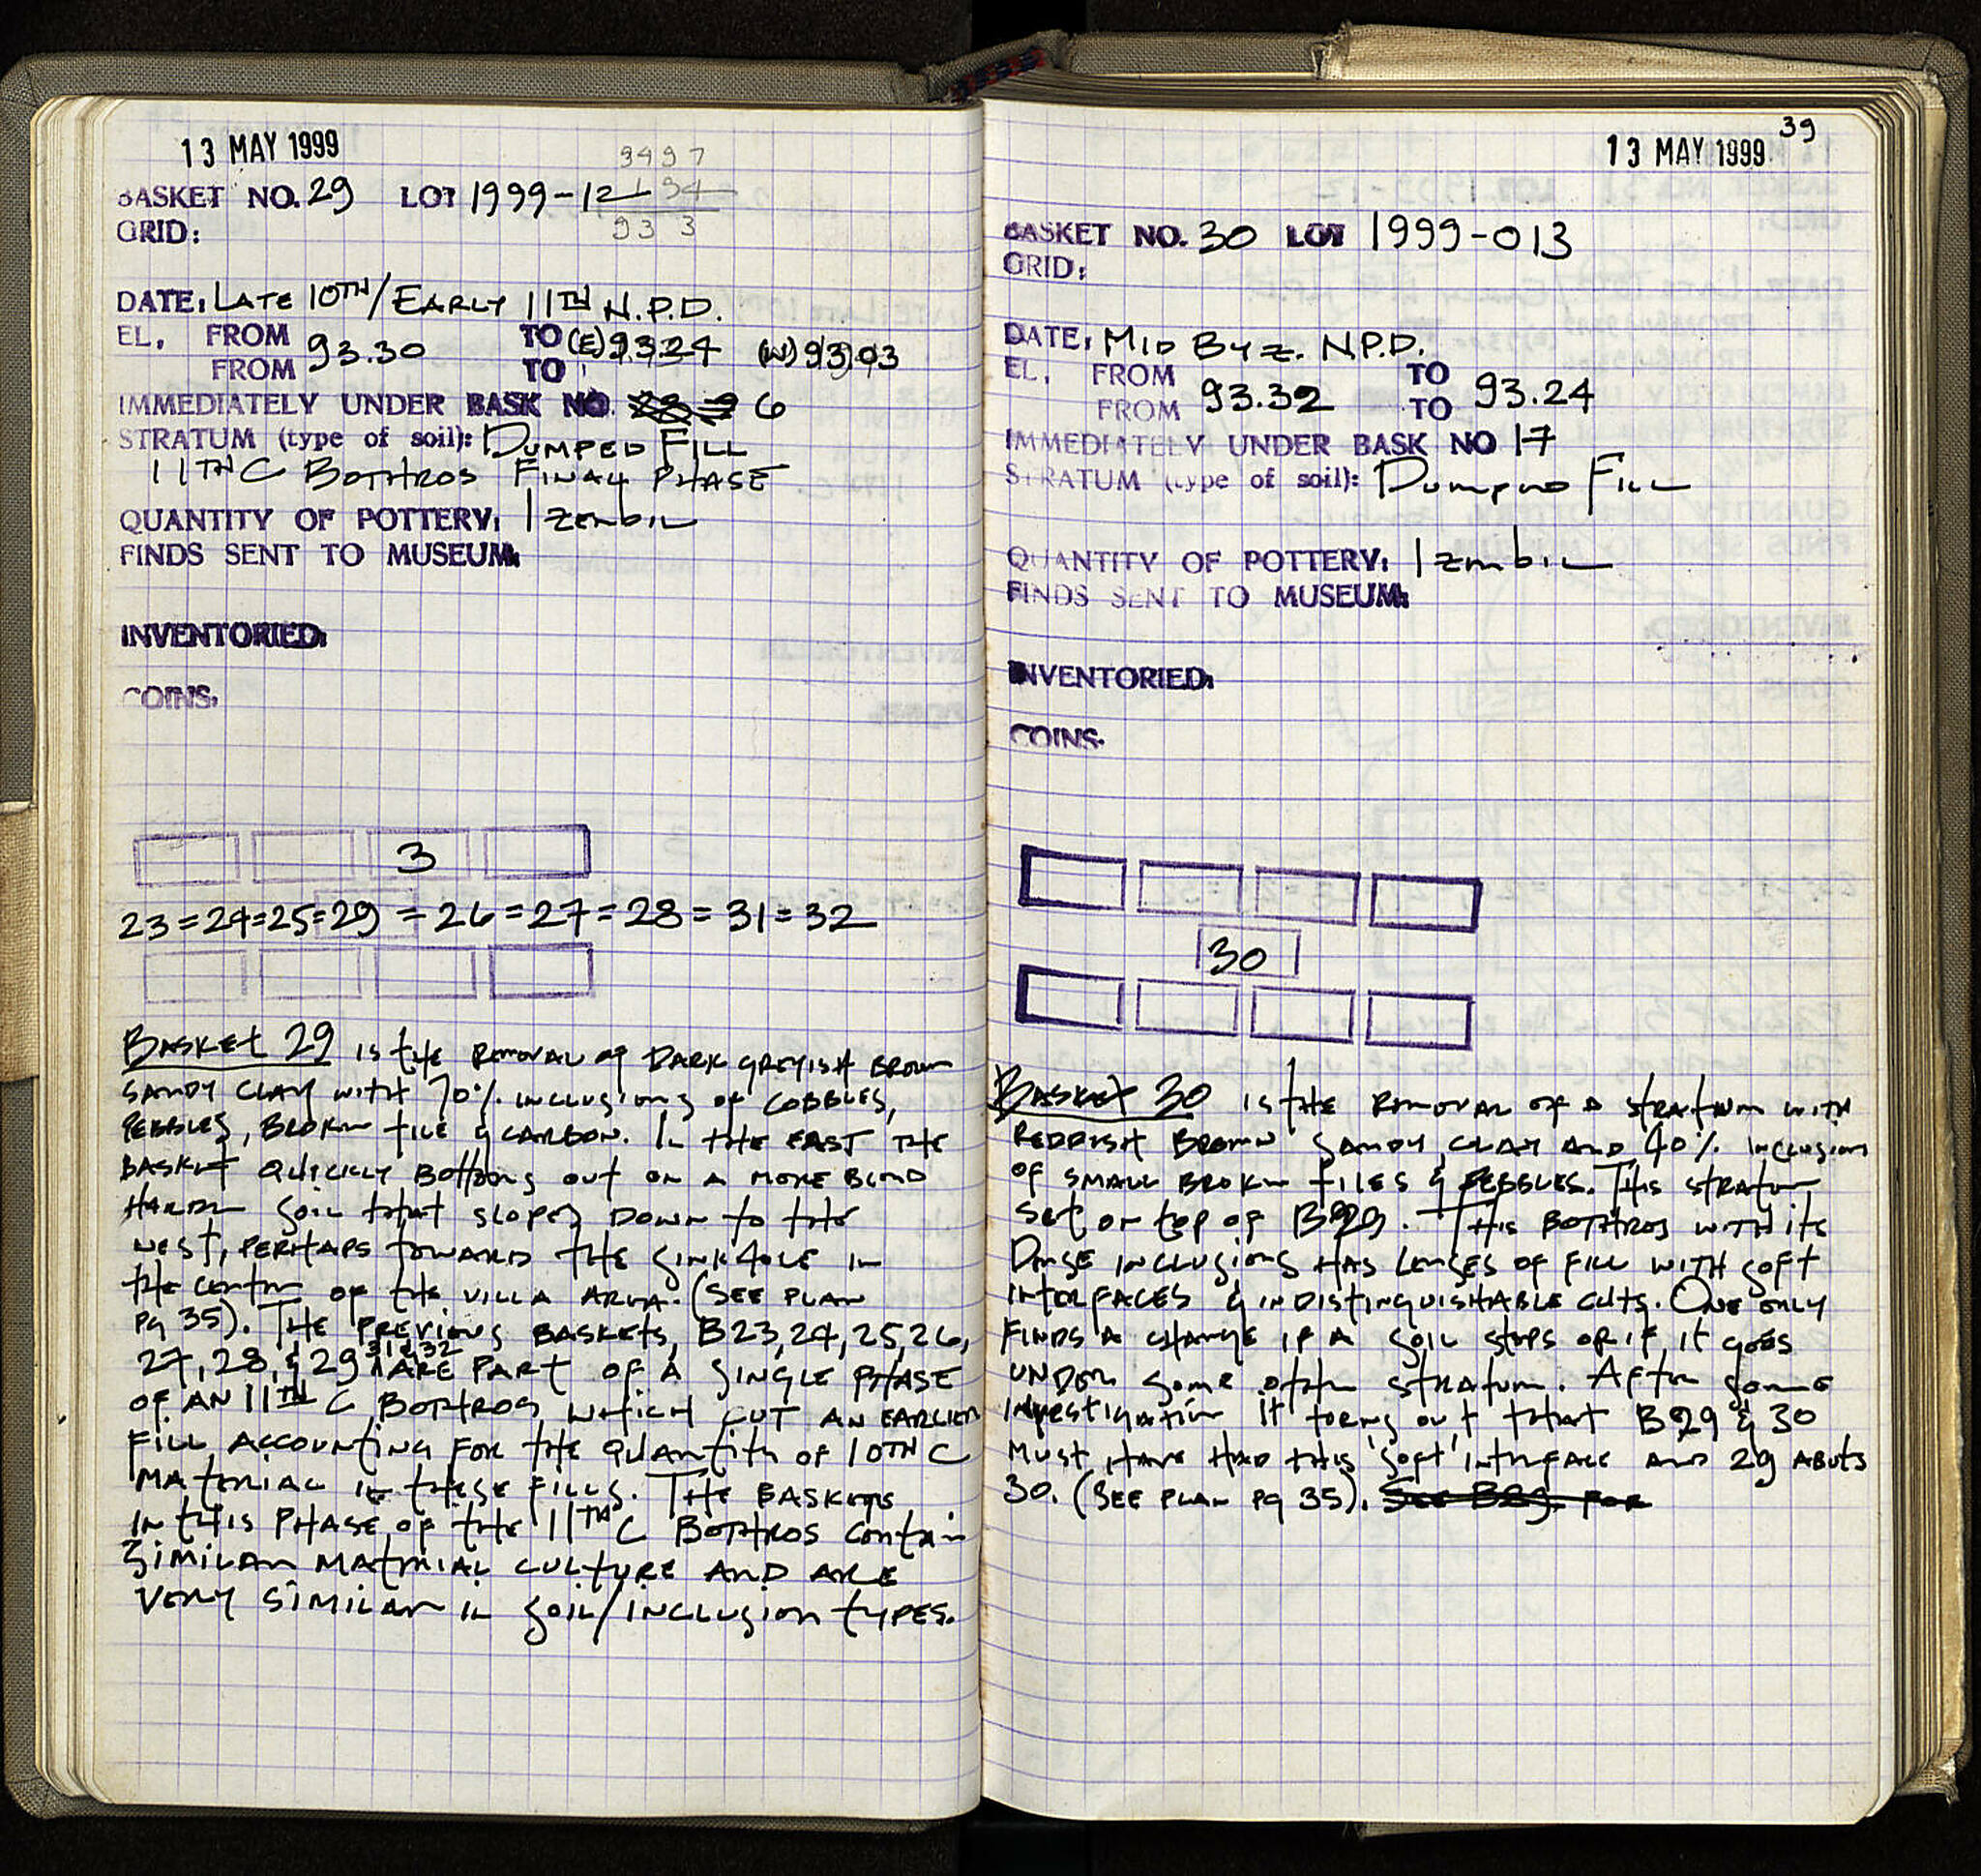 13 MAY 1999
9497
BASKET NO. 29 LOT 1999-12 1 94
93 3
GRID:
DATE: LATE 10TH/EARLY 11TH N.P.D.
EL. FROM 93.30 TO (E) 93.24 (W) 93.03
FROM TO
IMMEDIATELY UNDER BASK NO. 6
STRATUM (type of soil): DUMPED FILL
11TH C BOTHROS FINAL PHASE
QUANTITY OF POTTERY: 1 ZEMBIL
FINDS SENT TO MUSEUM:
INVENTORIED:
COINS:
3
23=24=25=29=26=27=28=31=32
BASKET 29 IS THE REMOVAL OF DARK GREYISH BROWN
SANDY CLAY WITH 70% INCLUSIONS OF COBBLES,
PEBBLES, BROKEN TILE & CARBON. IN THE EAST THE
BASKET QUICKLY BOTTOMS OUT ON A MORE
HARDER SOIL THAT SLOPES DOWN TO THE
WEST, PERHAPS TOWARD THE SINKHOLE IN
THE CENTER OF THE VILLA AREA. (SEE PLAN
Pg 35). THE PREVIOUS BASKETS, B23, 24, 25, 26,
27, 28, & 29 31 & 32 ARE PART OF A SINGLE PHASE
OF AN 11TH C BOTHROS WHICH CUT AN EARLIER
FILL ACCOUNTING FOR THE QUANTITY OF 10TH C
MATERIAL IN THESE FILLS. THE BASKETS
IN THIS PHASE OF THE 11TH C BOTHROS CONTAIN
SIMILAR MATERIAL CULTURE AND ARE
VERY SIMILAR IN SOIL/INCLUSION TYPES.
39
13 MAY 1999
BASKET NO. 30 LOT 1999-013
GRID:
DATE: MID BYZ. N.P.D.
EL. FROM 93.32 TO 93.24
FROM TO
IMMEDIATELY UNDER BASK NO 17
STRATUM (type of soil): DUMPED FILL
QUANTITY OF POTTERY: 1 ZEMBIL
FINDS SENT TO MUSEUM:
INVENTORIED:
COINS:
30
BASKET 30 IS THE REMOVAL OF A STRATUM WITH
REDDISH BROWN SANDY CLAY AND 40% INCLUSION
OF SMALL BROKEN TILES & PEBBLES. THIS STRATUM
SET ON TOP OF B29. THIS BOTHROS WITH ITS
DENSE INCLUSIONS HAS LENSES OF FILL WITH SOFT
INTERFACES & INDISTINGUISHABLE CUTS. ONE ONLY
FINDS A CHANGE IF A SOIL STOPS OR IF IT GOES
UNDER SOME OTHER STRATUM. AFTER SOME
INVESTIGATION IT TURNS OUT THAT B29 & 30
MUST HAVE HAD THIS 'SOFT' INTERFACE AND 29 ABUTS
30. (SEE PLAN Pg 35). SEE B29. FOR